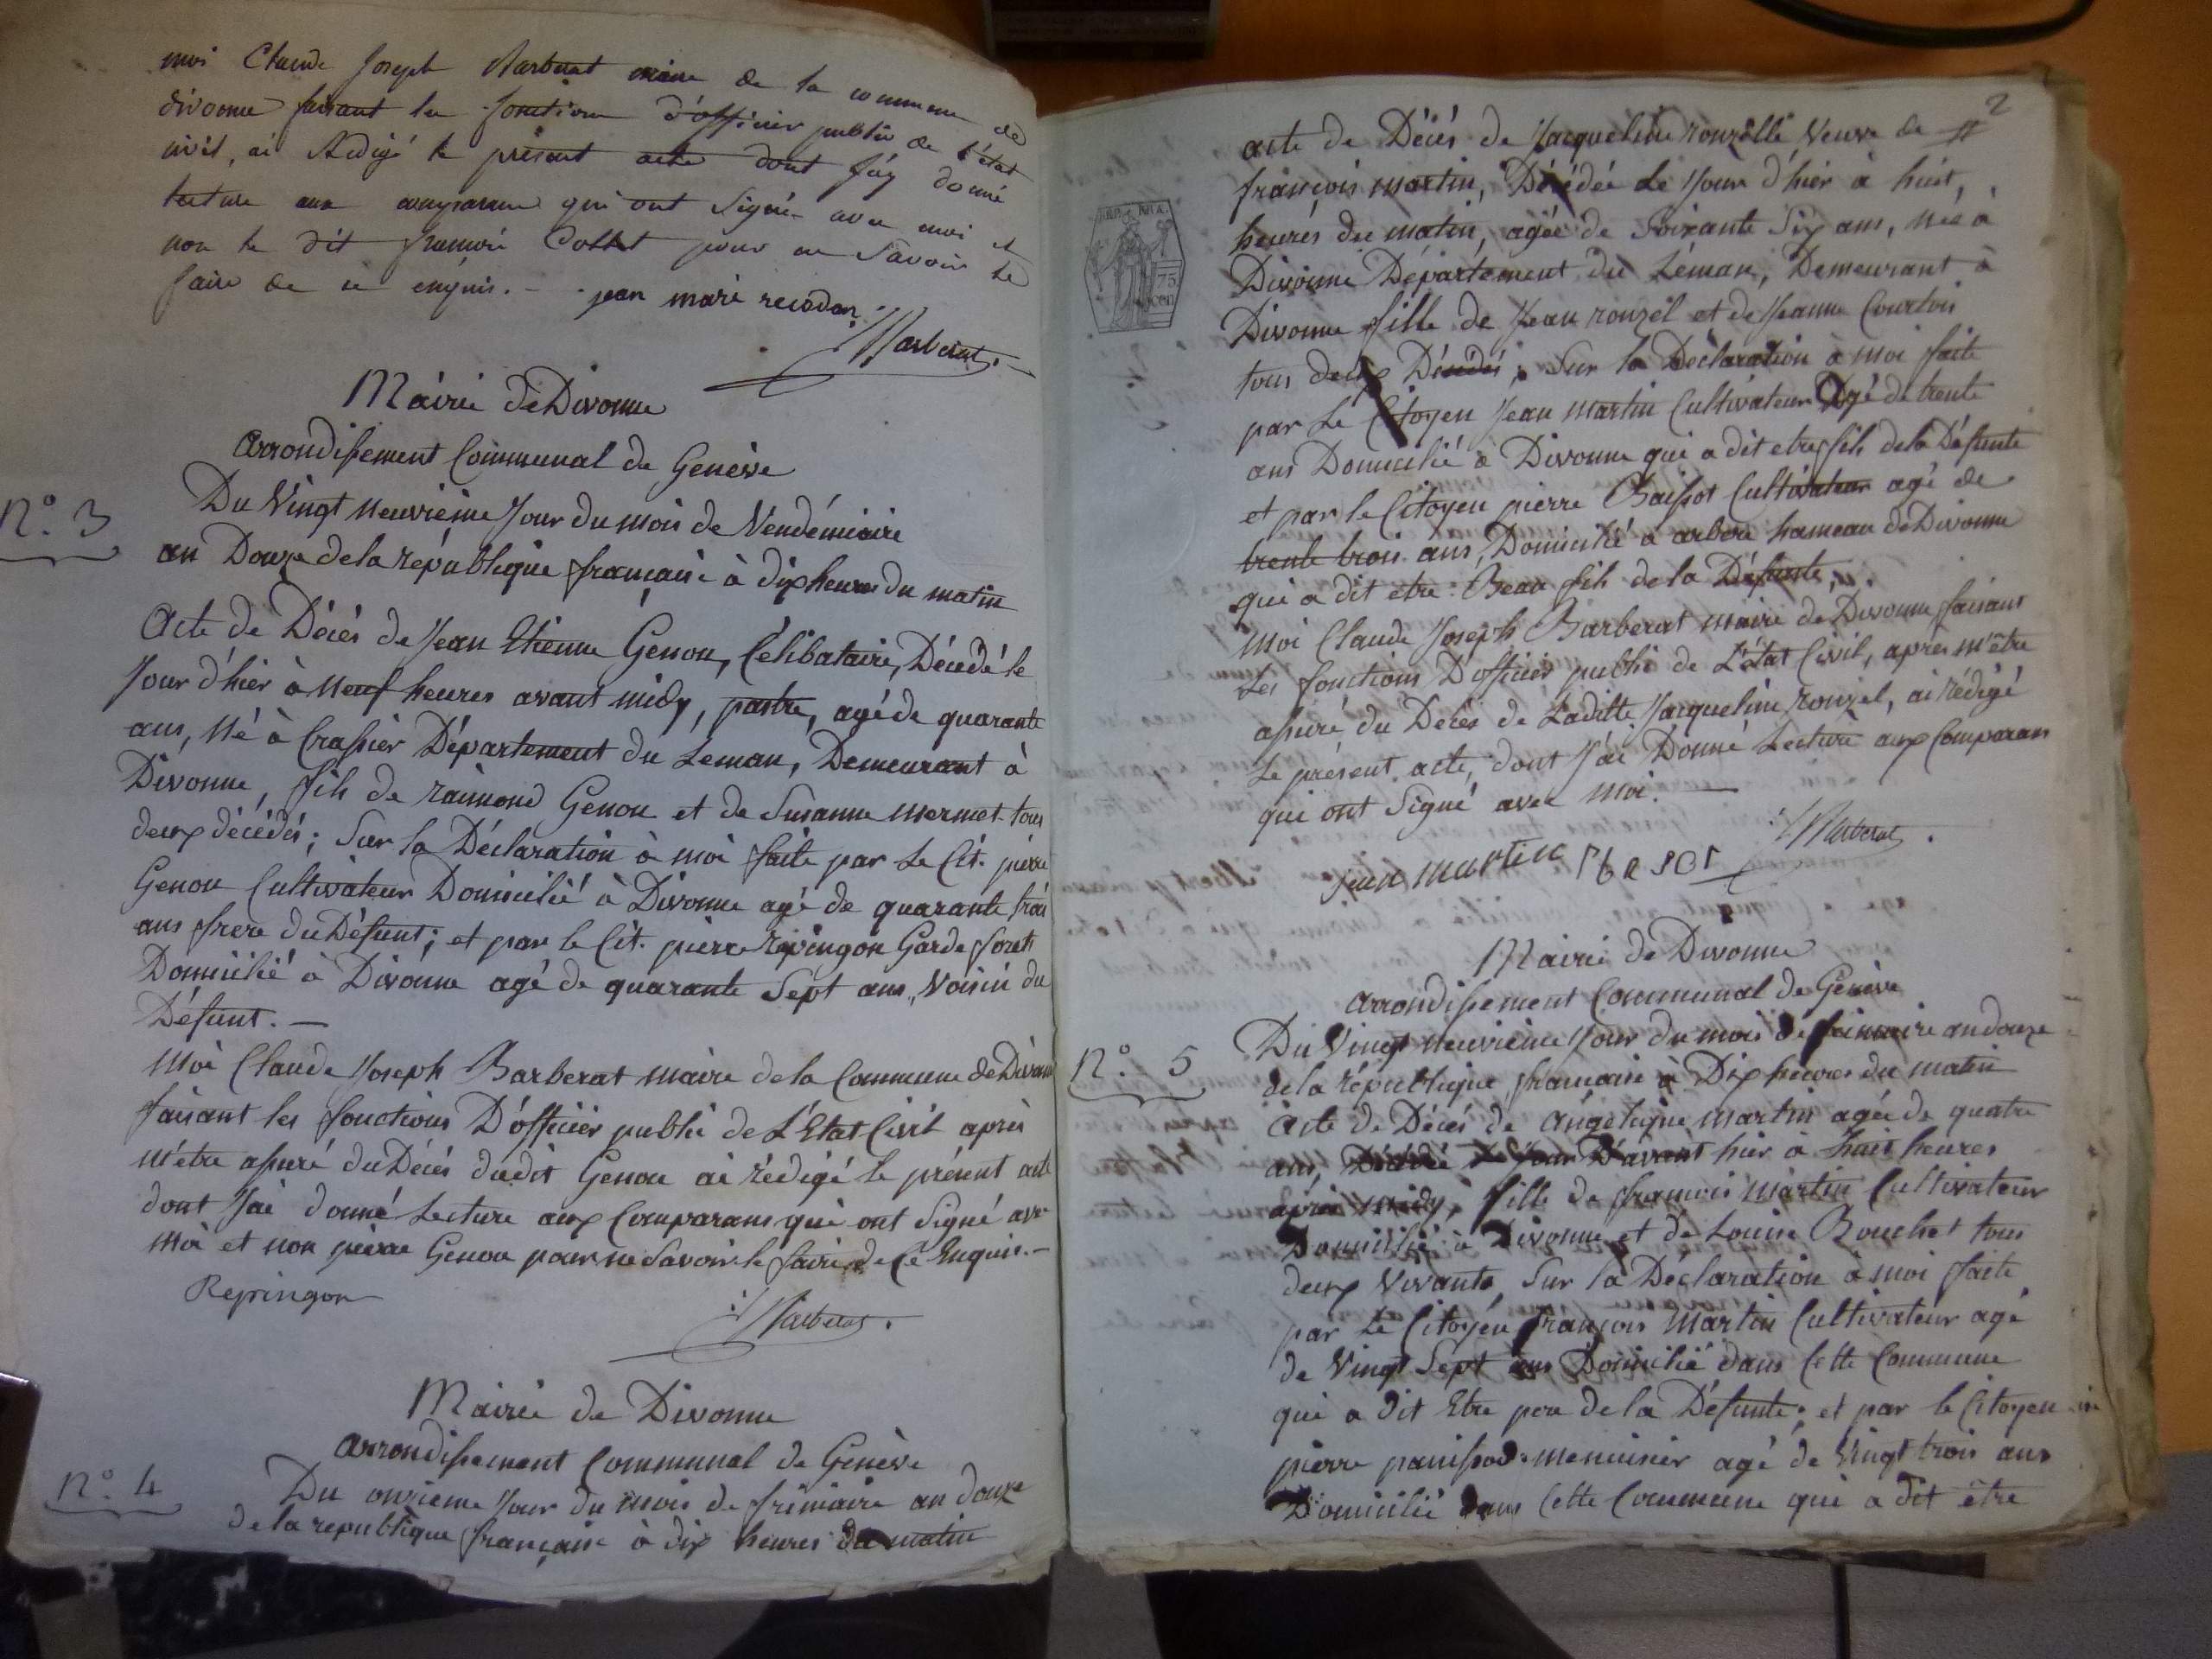 moi Claude Joseph Barberat maire de la commune de
divonne faisant les fonctions d'officier public de l'état
civil, ai Rédigé le présent acte dont j'ay donné
lecture aux comparans qui ont Signé avec moi et
non le dit françois Collet pour ne Savoir le
faire de ce enquis. - jean marie recordon
Barberat.
Mairie de Divonne
Arrondissement Communal de Genève
N.o 3
Du Vingt neuvieme Jour du mois de Vendémiaire
an Douze de la république française à dix heures du matin
Acte de Décés de Jean Etienne Genou, Célibataire, Décédé le
Jour d'hier à neuf heures avant midy, pastre, agé de quarante
ans, né à Crassier Département du Léman, Demeurant à
Divonne, fils de raimond Genou et de Susanne mermet tous
deux décédés; Sur la Déclaration à moi faite par le Cit. pierre
Genou Cultivateur Domicilié à Divonne agé de quarante trois
ans frere du Défunt; et par le Cit. pierre repingon Garde foret
Domicilié à Divonne agé de quarante Sept ans, Voisin du
Défunt. —
Moi Claude Joseph Barberat maire de la Commune de Divonne
faisant les fonctions D'officier public de L'Etat Civil après
m'etre assuré du Décés dudit Genou ai rédigé le présent acte
dont J'ai donné Lecture aux Comparans qui ont Signé avec
moi et non pierre Genou pour ne Savoir le faire de Ce Enquis. —
Repingon
Barberat.
Mairie de Divonne
Arrondissement Communal de Genève
N.o 4
Du onzieme Jour du mois de frimaire an douze
de la republique française à dix heures du matin
2
acte de Décés de Jacqueline rouzelle Veuve de
françois martin, Décédée Le Jour d'hier à huit
heures du matin, agée de Soixante Six ans, née à
Divonne Département du Léman, Demeurant à
Divonne fille de Jean rouzel et de Jeanne Courtois
tous deux Décédés, Sur la Déclaration à moi faite
par Le Citoyen Jean martin Cultivateur Agé de trente
ans Domicilié à Divonne qui a dit etre fils de la Défunte
et par le Citoyen pierre Baissot Cultivateur agé de
trente trois ans, Domicilié à arbere hameau de Divonne
qui a dit etre Beau fils de la Défunte,
Moi Claude Joseph Barberat maire de Divonne faisant
Les fonctions D'officier public de L'état Civil, après m'être
assuré du Décés de Laditte Jacqueline rouzel, ai rédigé
Le présent acte, dont J'ai Donné Lecture aux Comparans
qui ont Signé avec moi. —
Barberat.
jean martin
Mairie de Divonne
Arrondissement Communal de Genève
N.o 5
Du Vingt neuvieme Jour du mois de frimaire an douze
de la république française à Dix heures du matin
Acte de Décés de Angelique martin agée de quatre
ans, Décédée le jour D'avant hier à huit heures
après midy, fille de françois martin Cultivateur
Domicilié à Divonne et de Louise Bouchet tous
deux Vivants, Sur la Déclaration à moi faite
par Le Citoyen françois Martin Cultivateur agé
de Vingt Sept ans Domicilié dans Cette Commune
qui a dit Etre pere de la Défunte; et par le Citoyen
pierre panissod menuisier agé de Vingt trois ans
Domicilié dans Cette Commune qui a dit être